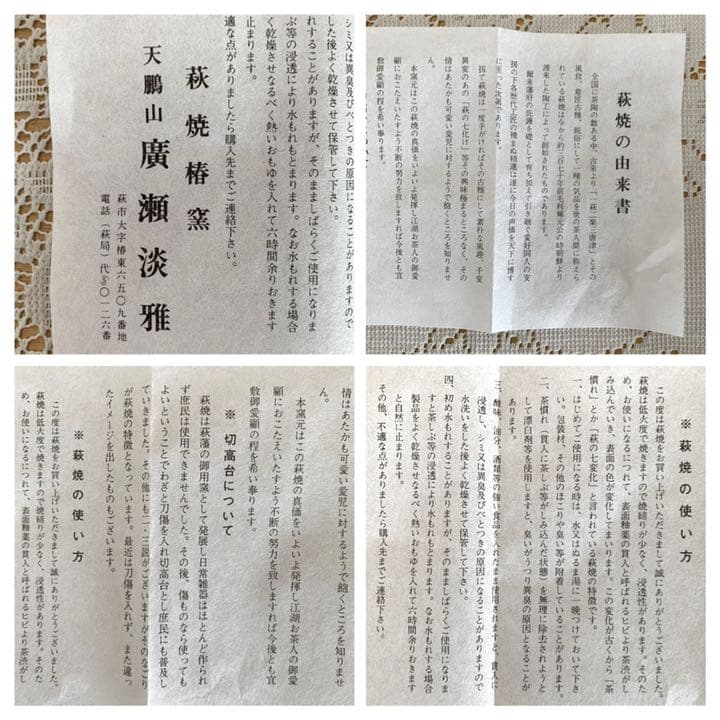 シミ又は異臭及びべとつきの原因になることがありますので
した後よく乾燥させて保管して下さい。
れすることがありますが、そのまましばらくご使用になりま
ぶ等の浸透により水もれもとまります。なお水もれする場合
く乾燥させなるべく熱いおもゆを入れて六時間余りおきます
止まります。
適な点がありましたら購入先までご連絡下さい。
萩焼椿窯
天鵬山 廣瀬淡雅
萩市大字椿東六五〇九番地
電話(萩局)代 〇一二六番
萩焼の由来書
全国に茶陶の数ある中、古来より「一萩二楽三唐津」とその
風致、意匠古雅、脱俗にして一種の気品を後の茶人間に称えら
れている萩焼は今から約三百七十年前毛利輝元公の時朝鮮より
渡来した陶工によって創始されたものであります。
爾来藩府の庇護を礎として育ち加えて引き継ぐ愛好同人の支
援の下各歴代工匠の撓まぬ精進は遂に今日の声価を天下に博す
に至った次第であります。
扨て萩焼は一度手がければその古雅にして素朴な風趣、千変
異変のあの「萩の七化け」等その興味極まるところなく、その
情はあたかも可愛い愛児に対するようで飽くところを知りませ
ん。
本窯元はこの萩焼の真価をいよいよ発揮し江湖お茶人の御愛
顧におこたえいたすよう不断の努力を致しますれば今後とも宜
敷御愛顧の程を希い奉ります。
情はあたかも可愛い愛児に対するようで飽くところを知りませ
ん。
本窯元はこの萩焼の真価をいよいよ発揮し江湖お茶人の御愛
顧におこたえいたすよう不断の努力を致しますれば今後とも宜
敷御愛顧の程を希い奉ります。
※ 切高台について
萩焼は萩藩の御用窯として発展し日常雑器はほとんど作られ
ず庶民は使用できませんでした。その後、傷ものなら使っても
よいということでわざと刀傷を入れ切高台とし庶民にも普及し
ていきました。その他にも二・三説がございますがそのなごり
が萩焼の特徴となっています。最近は刀傷を入れず、また違っ
たイメージを出したものもございます。
※ 萩焼の使い方
この度は萩焼をお買い上げいただきまして誠にありがとうございました。
萩焼は低火度で焼きますので焼締りが少なく、浸透性があります。そのた
め、お使いになるにつれて、表面釉薬の貫入と呼ばれるヒビより茶渋がし
※ 萩焼の使い方
この度は萩焼をお買い上げいただきまして誠にありがとうございました。
萩焼は低火度で焼きますので焼締りが少なく、浸透性があります。そのた
め、お使いになるにつれて、表面釉薬の貫入と呼ばれるヒビより茶渋がし
み込んでいき、表面の色が変化してまいります。この変化が古くから「茶
慣れ」とか「萩の七変化」と言われている萩焼の特徴です。
一、はじめてご使用になる時は、水又はぬるま湯に一晩つけておいて下さ
い。包装材、その他のほこりや臭い等が附着していることがあります。
二、茶慣れ(貫入に茶しぶ等がしみ込んだ状態)を無理に除去されようと
して漂白剤等を使用しますと、臭いがうつり異臭の原因となることが
あります。
三、酸味、油分、酒類等の強い食品を入れたまま使用されますと、貫入に
浸透し、シミ又は異臭及びべとつきの原因になることがありますので
水洗いをした後よく乾燥させて保管して下さい。
四、初め水もれすることがありますが、そのまましばらくご使用になりま
すと茶しぶ等の浸透により水もれもとまります。なお水もれする場合
製品をよく乾燥させなるべく熱いおもゆを入れて六時間余りおきます
と自然に止まります。
その他、不適な点がありましたら購入先までご連絡下さい。